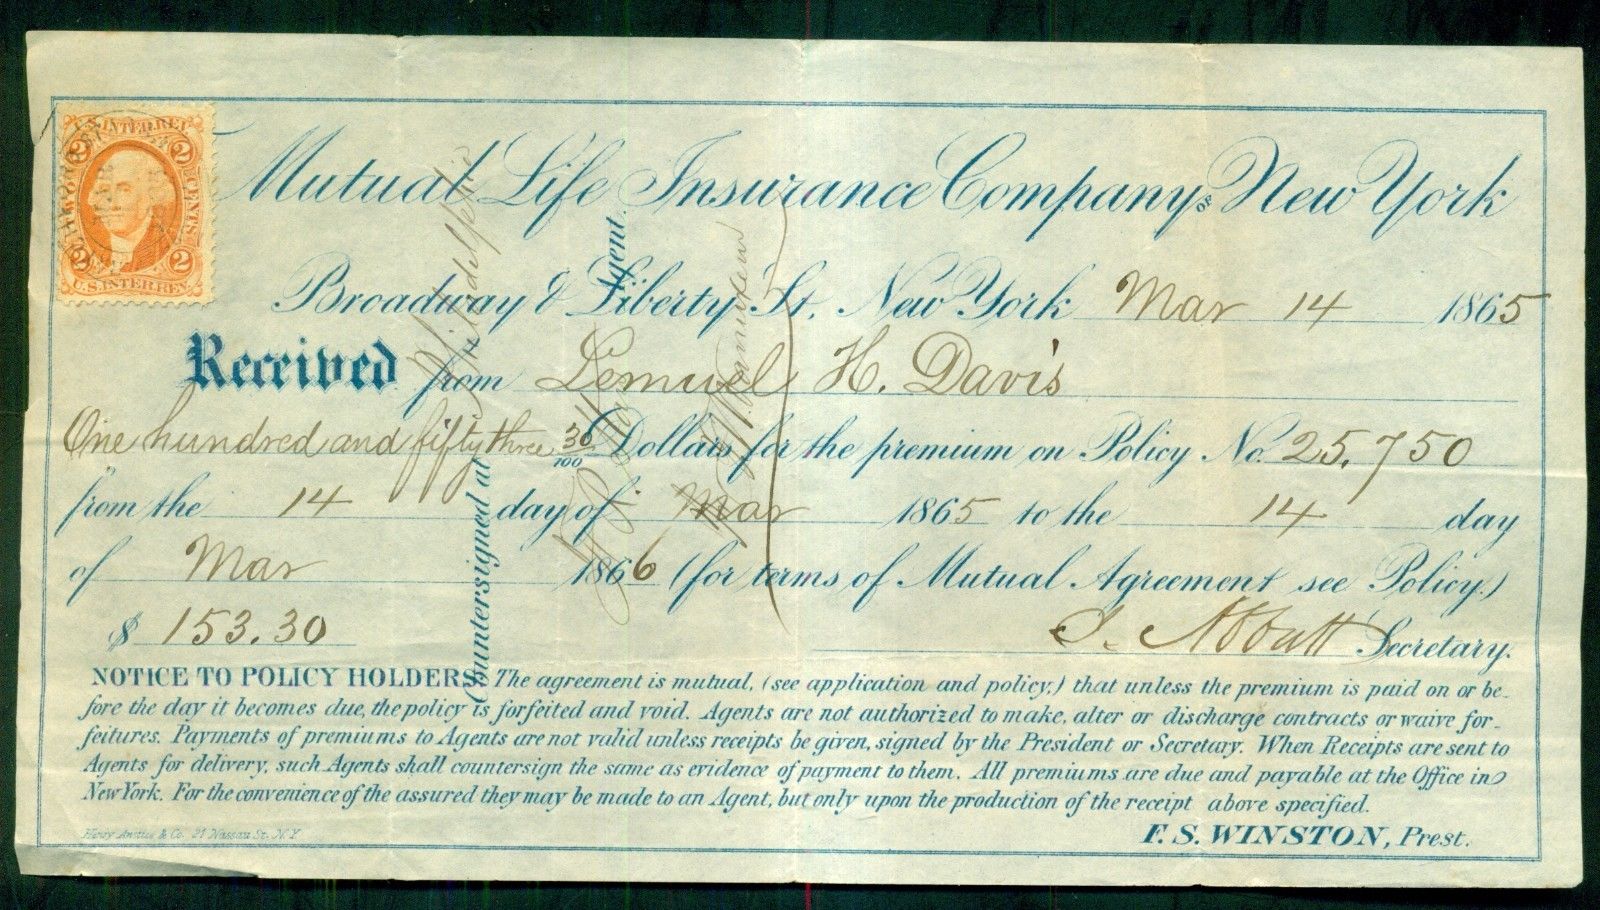 U.S. INTER. REV.
2 2
CENTS
2 2
U.S. INTER. REV.
Mutual Life Insurance Company OF New York
Broadway & Liberty St. New York Mar 14 1865
Received from Lemuel H. Davis
One hundred and fifty three 30/100 Dollars for the premium on Policy No. 25,750
from the 14 day of Mar 1865 to the 14 day
of Mar 1866 (for terms of Mutual Agreement see Policy.)
$ 153.30
Abbatt Secretary.
Countersigned at Philadelphia
Agent.
NOTICE TO POLICY HOLDERS. The agreement is mutual, (see application and policy,) that unless the premium is paid on or be-
fore the day it becomes due, the policy is forfeited and void. Agents are not authorized to make, alter or discharge contracts or waive for-
feitures. Payments of premiums to Agents are not valid unless receipts be given, signed by the President or Secretary. When Receipts are sent to
Agents for delivery, such Agents shall countersign the same as evidence of payment to them. All premiums are due and payable at the Office in
New York. For the convenience of the assured they may be made to an Agent, but only upon the production of the receipt above specified.
F. S. WINSTON, Prest.
& Co. Nassau St. N.Y.